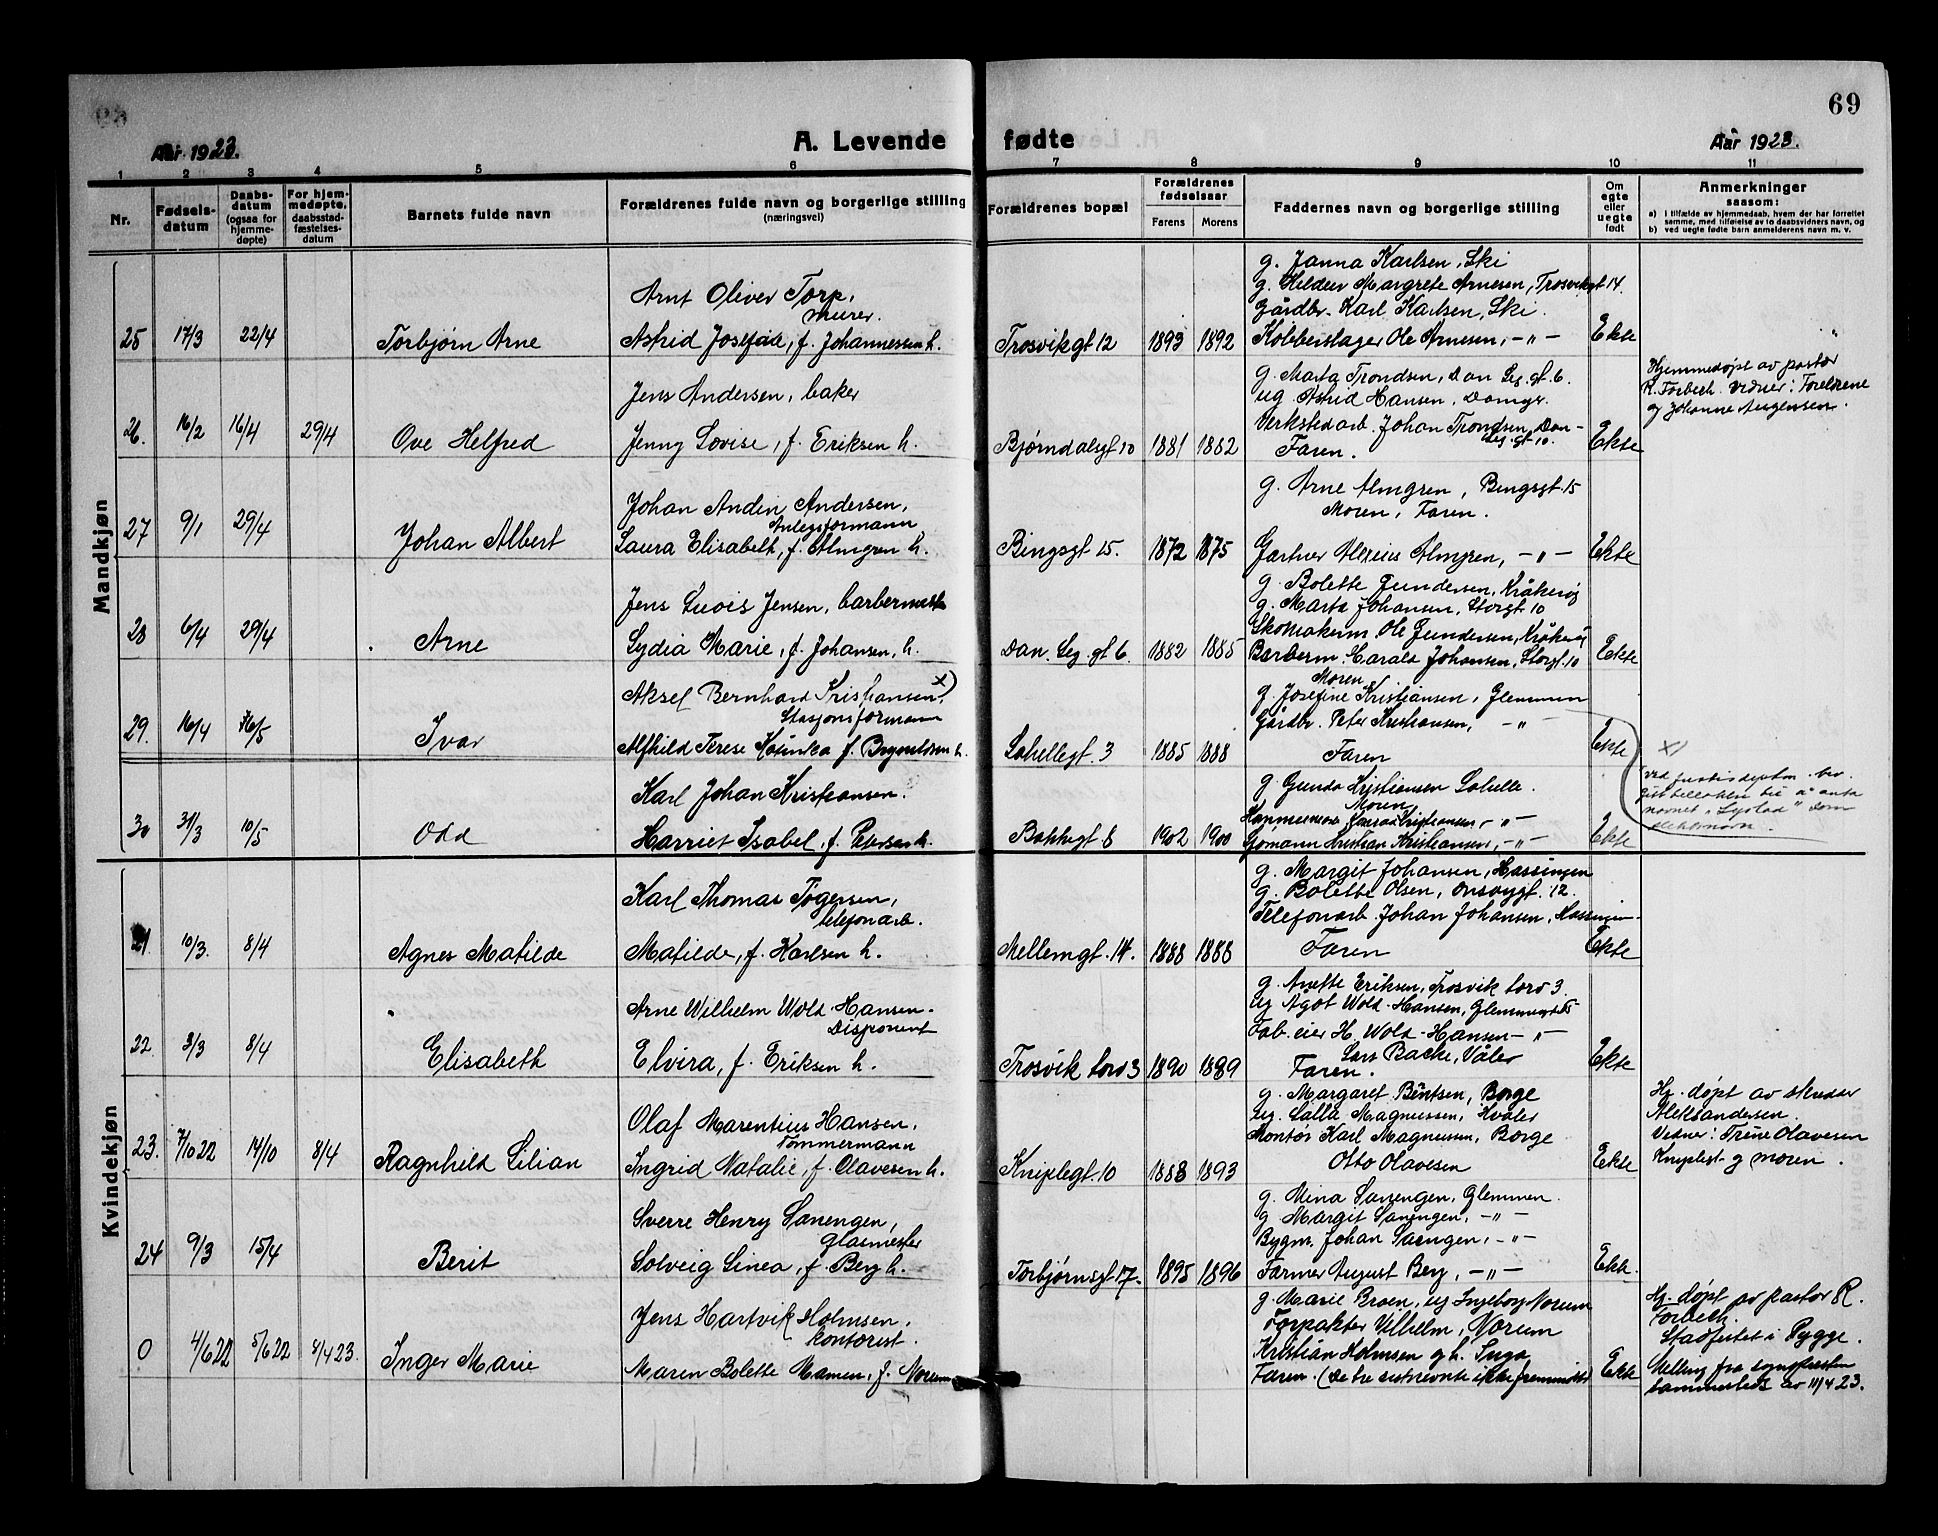 69
Aar 1923.
A. Levende fødte
Aar 1923.
1 2 3 4 5 6 7 8 9 10 11
Nr.
Fødsels-
datum
Daabs-
datum
(ogsaa for
hjemme-
døpte)
For hjem-
medøpte,
daabsstad-
fæstelses-
datum
Barnets fulde navn
Forældrenes fulde navn og borgerlige stilling
(næringsvei)
Forældrenes bopæl
Forældrenes
fødselsaar
Farens Morens
Faddernes navn og borgerlige stilling
Om
egte
eller
uegte
født
Anmerkninger
saasom:
a) i tilfælde av hjemmedaab, hvem der har forrettet
samme, med tilføielse av to daabsvidners navn, og
b) ved uegte fødte barn anmelderens navn m. v.
Mandkjøn
25 17/3 22/4 Torbjørn Arne
Arnt Oliver Torp,
murer.
Astrid Josefine, f. Johannessen h.
Trosvikgt 12 1893 1892
g. Janna Karlsen, Ski
g. Margrete Arnesen, Trosvikgt 14.
Gårdbr. Karl Karlsen, Ski.
Kobberslager Ole Arnesen, -"-
Ekte
26. 16/2 16/4 29/4 Ove Helfred
Jens Andersen, baker
Jenny Lovise, f. Eriksen h.
Bjørndalsgt 10 1881 1882
g. Marta Trondsen, Dan Leg. gt. 6.
ug Astrid Hansen, Damgr.
Verkstedarb. Johan Trondsen, Dan-
Leg. gt 10.
Faren.
Ekte
Hjemmedøpt av pastor
R. Forbech. Vidner: Foreldrene
og Johanne Jørgensen.
27 9/1 29/4 Johan Albert
Johan Andin Andersen,
Anlegsformann
Laura Elisabeth, f. Almgren h.
Bingsgt 15. 1872 1875
g. Arne Almgren, Bingsgt. 15
Moren, Faren.
Gartner Almgren, -"-
Ekte
28 6/4 29/4 Arne
Jens Luois Jensen, barbermester
Lydia Marie, f. Johansen, h.
Dan. Leg. gt 6. 1882 1885
g. Bolette Gundersen, Kråkerøy
g. Marta Johansen, Storgt 10
Skomakerm. Ole Gundersen, Kråkerøy
Barberm. Harald Johansen, Storgt. 10
Ekte
29. 16/4 16/5 Ivar
Aksel Bernhard Kristiansen, x)
Stasjonsformann
Alfhild Terese f. Brynildsen h.
Labellegt. 3 1885 1888
Moren
g. Josefine Kristiansen, Glemmen
Gårdbr. Peter Kristiansen, -"-
Faren
Ekte
x)
ved justisdeptm. bev.
navnet "Lystad" som
slektsnavn.
30 31/3 10/5 Odd
Karl Johan Kristiansen.
Harriet Isabel, f. Petersen h.
Bakkegt 8 1902 1900
g. Gunda Kristiansen Labelle.
Moren
Kristiansen, -"-
Sjømann Kristian Kristiansen, -"-
Ekte
Kvindekjøn
21 10/3. 8/4 Agnes Matilde
Karl Thomas Tøgersen,
telefonarb.
Matilde, f. Karlsen h.
Mellemgt. 14. 1888 1888
g. Margit Johansen, Hassingen
g. Bolette Olsen, Onsøygt. 12.
Telefonarb. Johan Johansen, Hassingen
Faren
Ekte
22. 3/3 8/4 Elisabeth
Arne Wilhelm Wold Hansen.
Disponent
Elvira, f. Eriksen h.
Trosvik torv 3 1890 1889
g. Anette Eriksen, Trosvik torv 3.
ug Ågot Wold-Hansen, Glemmengt
Fab. eier H. Wold-Hansen -"-
Lars Backe, Våler
Faren.
Ekte
23. 7/10 22 14/10 8/4 Ragnhild Lilian
Olaf Marentius Hansen,
Tømmermann
Ingrid Natalie, f. Olavesen h.
Kniplegt. 10 1888 1893
g. Margaret Bentsen, Borge
ug. Lalla Magnussen, Hvaler
Montør Karl Magnussen, Borge
Otto Olavesen
Ekte
Hj. døpt av
Aleksandersen.
Vidner: Trine Olavesen
Kniplegt og moren.
24 9/3 15/4 Berit
Sverre Henry Sanengen,
glasmester
Solveig Linea, f. Berg h.
Torbjørnsgt 17. 1895 1896
g. Mina Sanengen, Glemmen.
g. Margit Sanengen, -"-
Bygm. Johan Sanengen, -"-
Farmer August Berg, -"-
Ekte.
0 4/6 22 5/6 22 8/4 23. Inger Marie
Jens Hartvik Holmsen,
kontorist.
Maren Bolette Mamen, f. Norum
g. Marie Braen, ug Ingeborg Norum
Forpakter Vilhelm, Norum
Kristian Holmsen og h. Inga
Faren. (De tre sistnevnte ikke fremmøtt)
Ekte
Hj. døpt av pastor R.
Forbech.
Stadfestet i Rygge.
Melling fra sognepresten
sammesteds av 11/4 23.